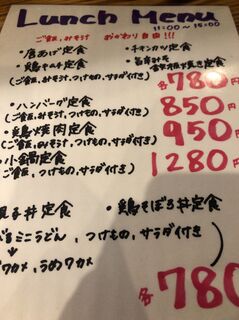 Lunch Menu
11:00~15:00
ご飯、みそ汁 おかわり自由!!!
・唐あげ定食 ・チキンカツ定食
・鶏キムチ定食 ・旨辛みそ
鉄板焼き定食
(ご飯、みそ汁、つけもの、サラダ付き) 各780円
・ハンバーグ定食 850円
・鶏焼肉定食 950円
(ご飯、みそ汁、つけもの、サラダ付き)
・小鍋定食 1280円
(ご飯、つけもの、サラダ付き)
親子丼定食 ・鶏そぼろ丼定食
ミニうどん、つけもの、サラダ付き)
ワカメ、うめワカメ
各780